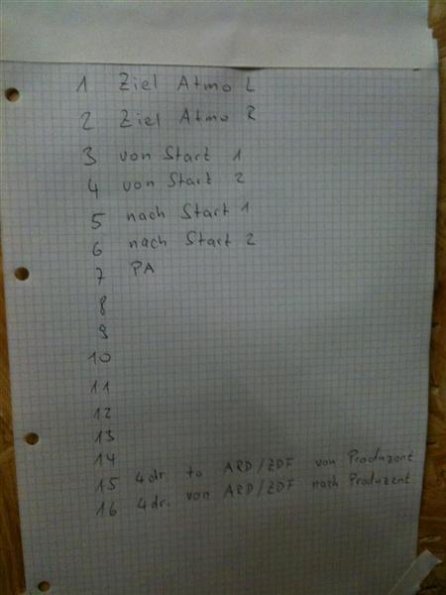 1 Ziel Atmo L
2 Ziel Atmo R
3 von Start 1
4 von Start 2
5 nach Start 1
6 nach Start 2
7 PA
8
9
10
11
12
13
14
15 4dr. to ARD/ZDF von Produzent
16 4dr. von ARD/ZDF nach Produzent